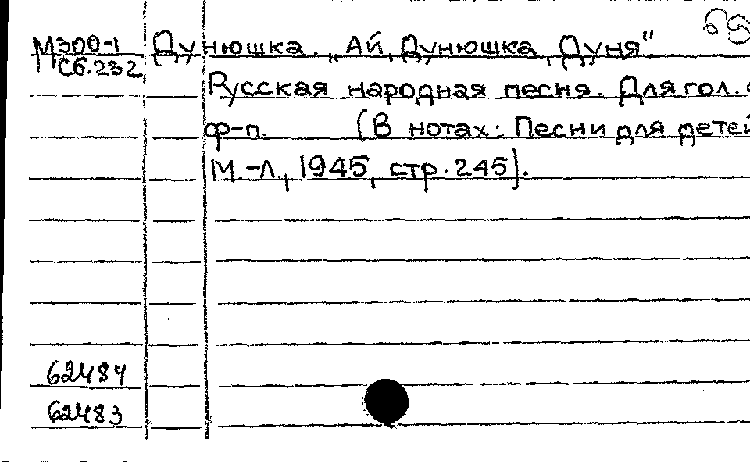 М300-1 Дунюшка. „Ай, Дунюшка, Дуня"
Сб.232
Русская народная песня. Для гол. с
ф-п. (В нотах: Песни для детей
М.-Л., 1945, стр. 245].
62484
62483